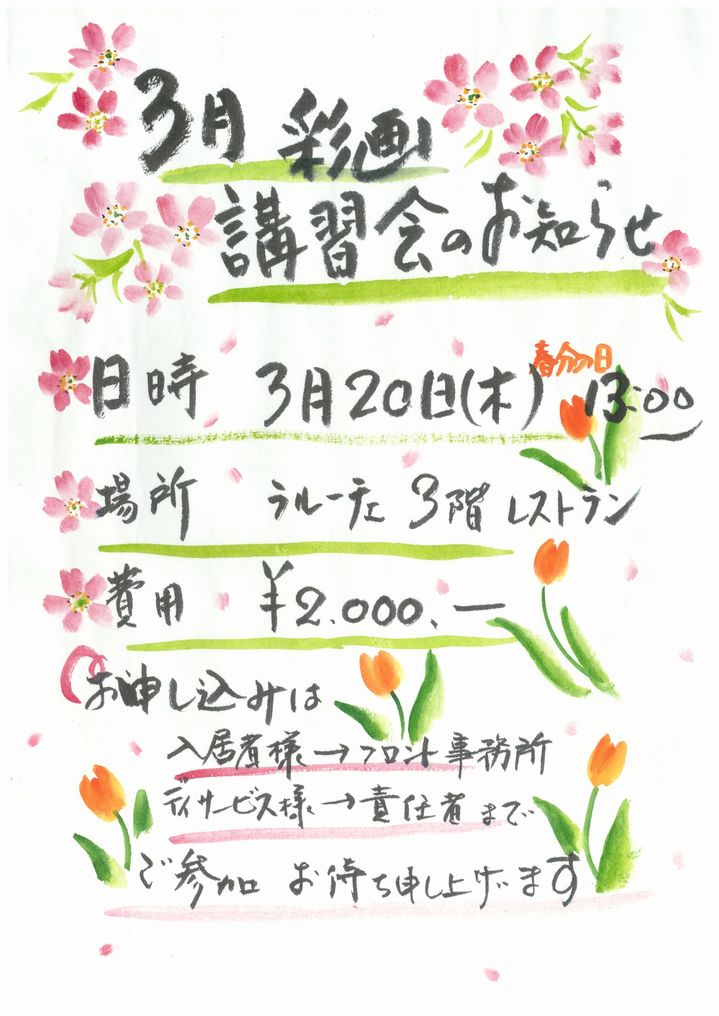 3月 彩画
講習会のお知らせ
春分の日
日時 3月20日(木) 13:00
場所 ラルーチェ 3階 レストラン
費用 ¥2.000.―
お申し込みは
入居者様→フロント事務所
デイサービス様→責任者まで
ご参加 お待ち申し上げます